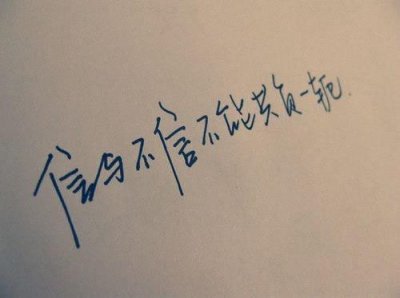 信与不信不能共负一轭.